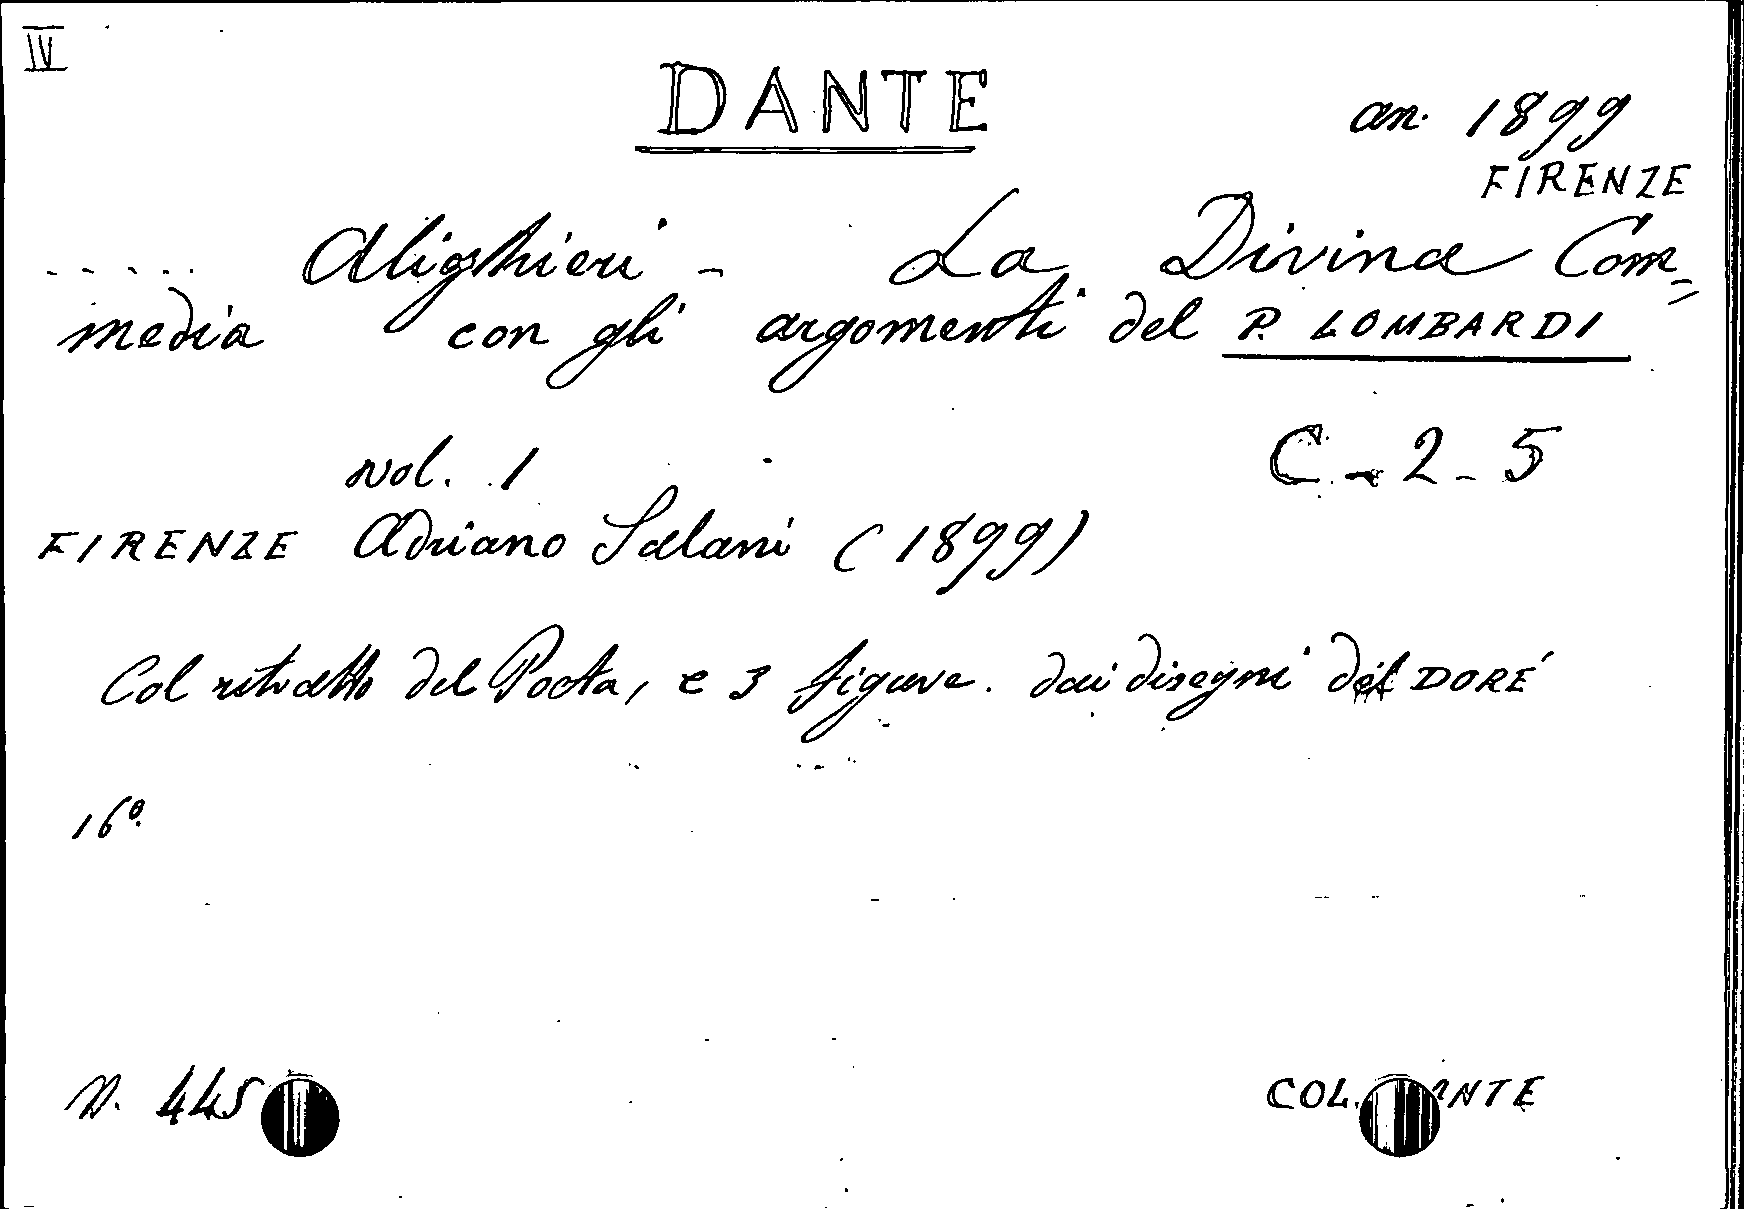 IV
DANTE
an. 1899
FIRENZE
..... Alighieri - La Divina Com=
media con gli argomenti del P. LOMBARDI
vol. 1
C - 2 - 5
FIRENZE Adriano Salani (1899)
Col ritratto del Poeta, e 3 figure. dai disegni del DORÉ
16°.
N. 445
COL.